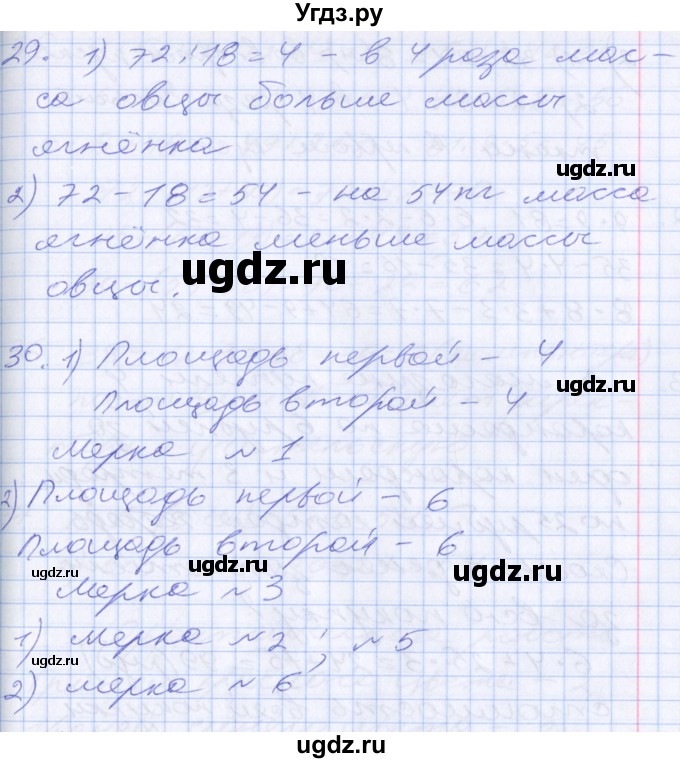 Угдз.ру
29. 1) 72:18=4 - в 4 раза мас-
са овцы больше массы
ягнёнка
ugdz.ru
2) 72-18=54 - на 54кг масса
ягнёнка меньше массы
ugdz.ru
ugdz.ru
овцы.
30. 1) Площадь первой - 4
ugdz.ru
Площадь второй - 4
Мерка №1
2) Площадь первой - 6
Площадь второй - 6
ugdz.ru ugdz.ru ugdz.ru
Мерка №3
1) мерка №2; №5
ugdz.ru
2) мерка №6
ugdz.ru
ugdz.ru